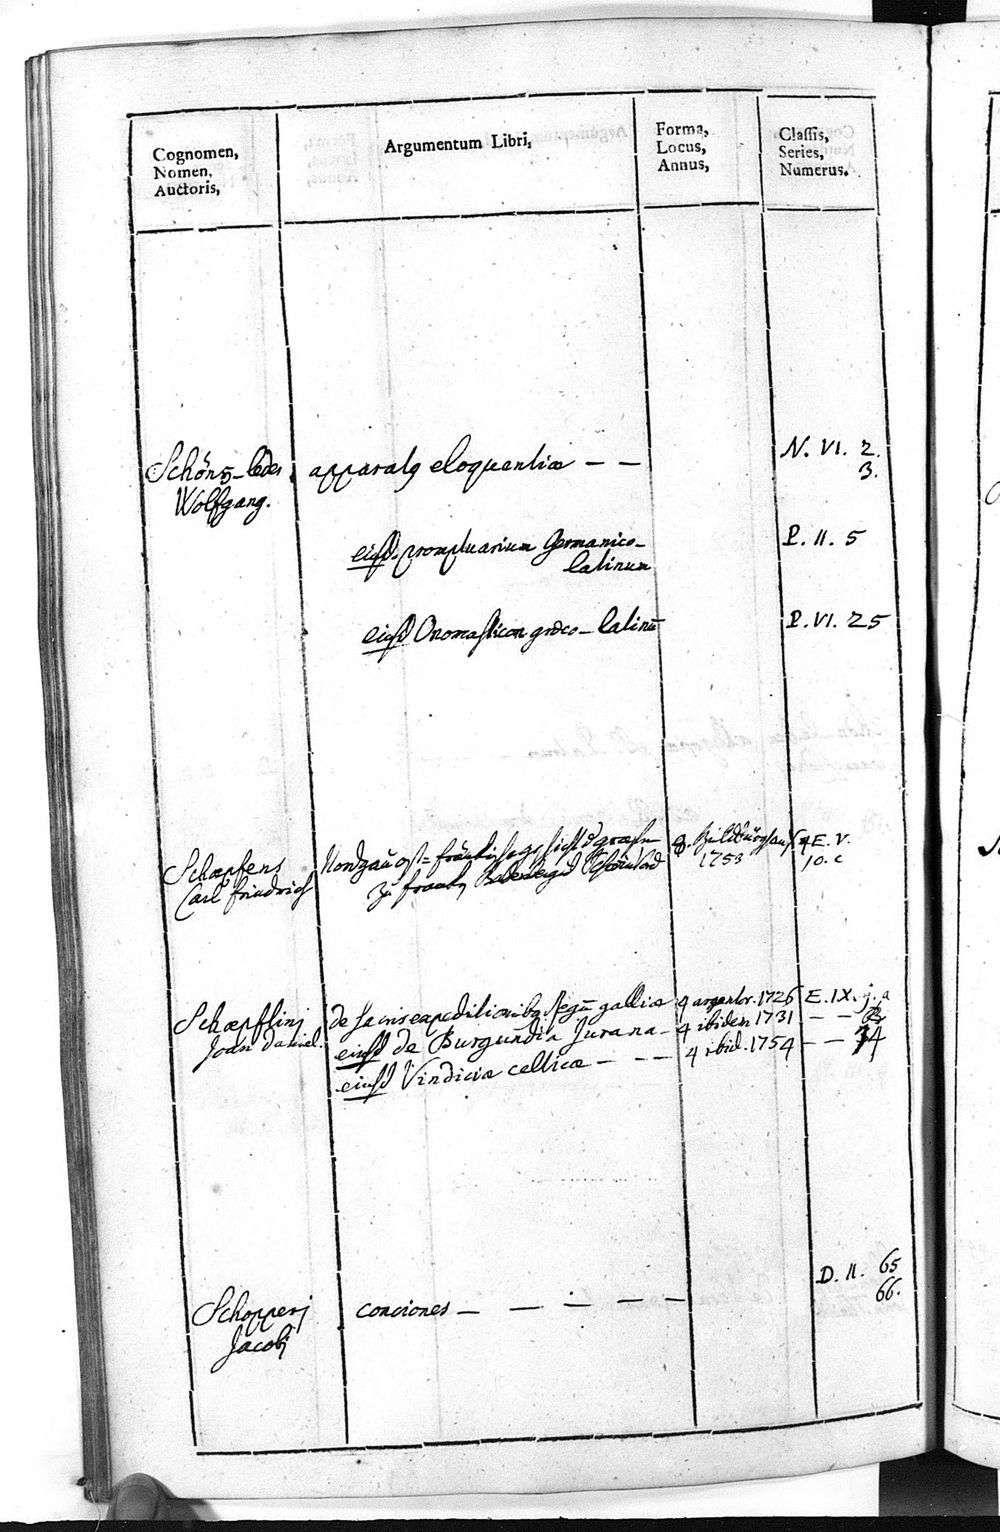 Cognomen,
Nomen,
Auctoris,
Argumentum Libri,
Forma,
Locus,
Annus,
Classis,
Series,
Numerus.
Schöns-leder
Wolfgang.
apparatq eloquentiæ — —
N. VI. 2.
3.
eiusd. promptuarium Germanico-
latinum
P. II. 5
eiusd Onomasticon græco-latinū
P. VI. 25
Schæpfens
Carl Friedrich
Nordgau ost-fränkische
zu
8. Hildburghaus
1753
E. V.
10. c
Schæpflinj
Joan Daniel.
de sacris expeditionibq Regū galliæ
4 argentor. 1726
E. IX. j. a
eiusd de Burgundia Jurana —
4 ibidem 1731
— —
eiusd Vindiciæ celticæ — — —
4 ibid. 1754
— — 4
Schopperj
Jacobj
conciones — — — — —
D. II. 65
66.